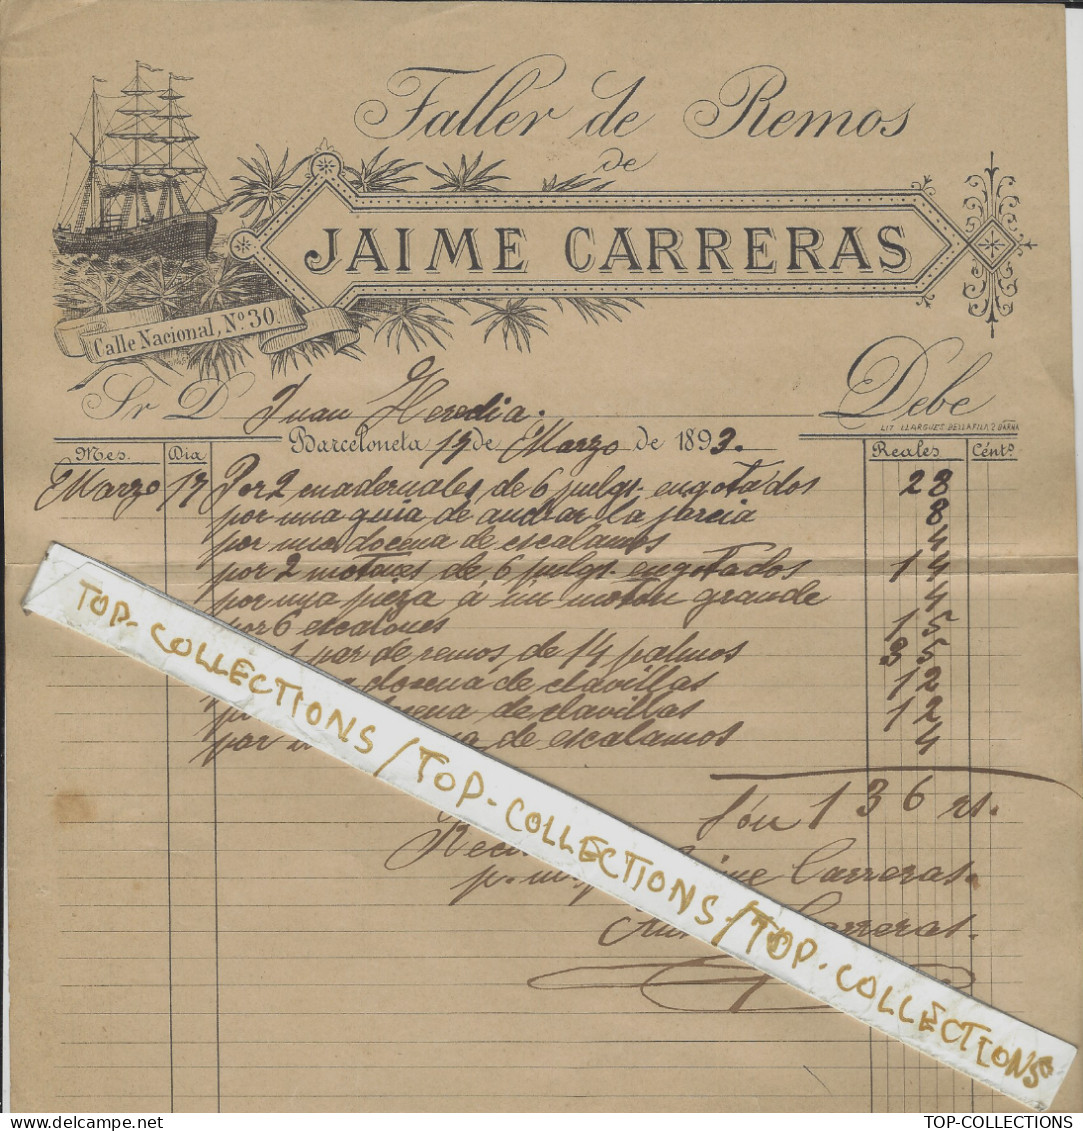 Taller de Remos
de
JAIME CARRERAS
Calle Nacional, Nº 30
Sr. D. Juan Heredia. Debe
LIT. LLARGUES DESLLAPILA, 2 BARNA
Barceloneta 17 de Marzo de 1893.
Mes. Dia Reales Cénts.
Marzo 17 Por 2 cuadernales de 6 pulgs. engotados 28
por una guia de andar la jarcia 8
por una docena de escalamos 4
por 2 motones de 6 pulgs. engotados 14
por una pieza á un moton grande 4
por 6 escalones 15
1 par de remos de 14 palmos 35
docena de clavillas 12
docena de clavillas 12
por de escalamos 4
136 rs.
Jaime Carreras.
Carreras.
TOP-COLLECTIONS / TOP-COLLECTIONS / TOP-COLLECTIONS
TOP-COLLECTIONS